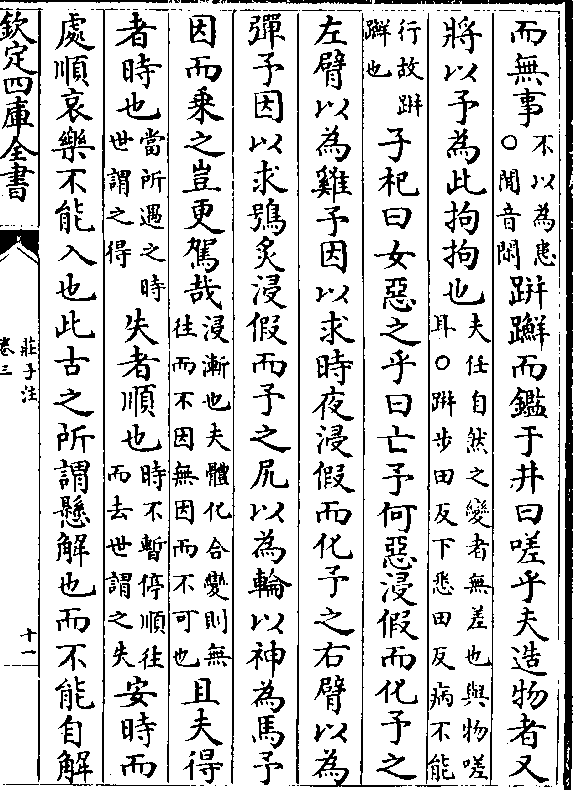 而無事不以為患○閒音閑跰𨇤而鑑于井曰嗟乎夫造物者又
將以予為此拘拘也夫任自然之變者無差也與物嗟耳○跰步田反下悉田反病不能
行故跰𨇤也子杞曰女惡之乎曰亡予何惡浸假而化予之
左臂以為雞予因以求時夜浸假而化予之右臂以為
彈予因以求鴞炙浸假而予之尻以為輪以神為馬予
因而乘之豈更駕哉浸漸也夫體化合變則無往而不因無因而不可也且夫得
者時也當所遇之時世謂之得失者順也時不暫停順往而去世謂之失安時而
處順哀樂不能入也此古之所謂懸解也而不能自解
欽定四庫全書
莊子注
卷三
十一